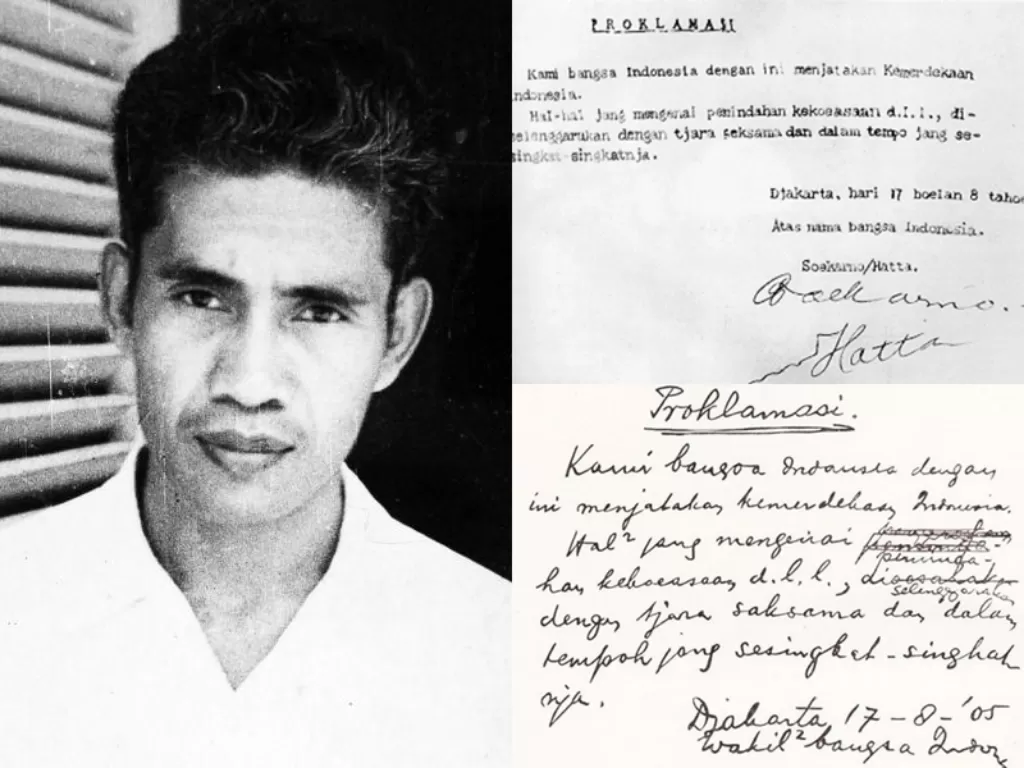 PROKLAMASI
Kami bangsa Indonesia dengan ini menjatakan Kemerdekaan
Indonesia.
Hal-hal jang mengenai pemindahan kekoeasaan d.l.l., di-
selenggarakan dengan tjara seksama dan dalam tempo jang se-
singkat-singkatnja.
Djakarta, hari 17 boelan 8 tahoe
Atas nama bangsa Indonesia.
Soekarno/Hatta.
Soekarno.
Hatta
Proklamasi.
Kami bangsa Indonesia dengan
ini menjatakan kemerdekaan Indonesia.
Hal² jang mengenai
peminda-
han kekoeasaan d.l.l.,
selenggarakan
dengan tjara saksama dan dalam
tempoh jang sesingkat-singkat
nja.
Djakarta 17-8-'05
Wakil² bangsa Indon